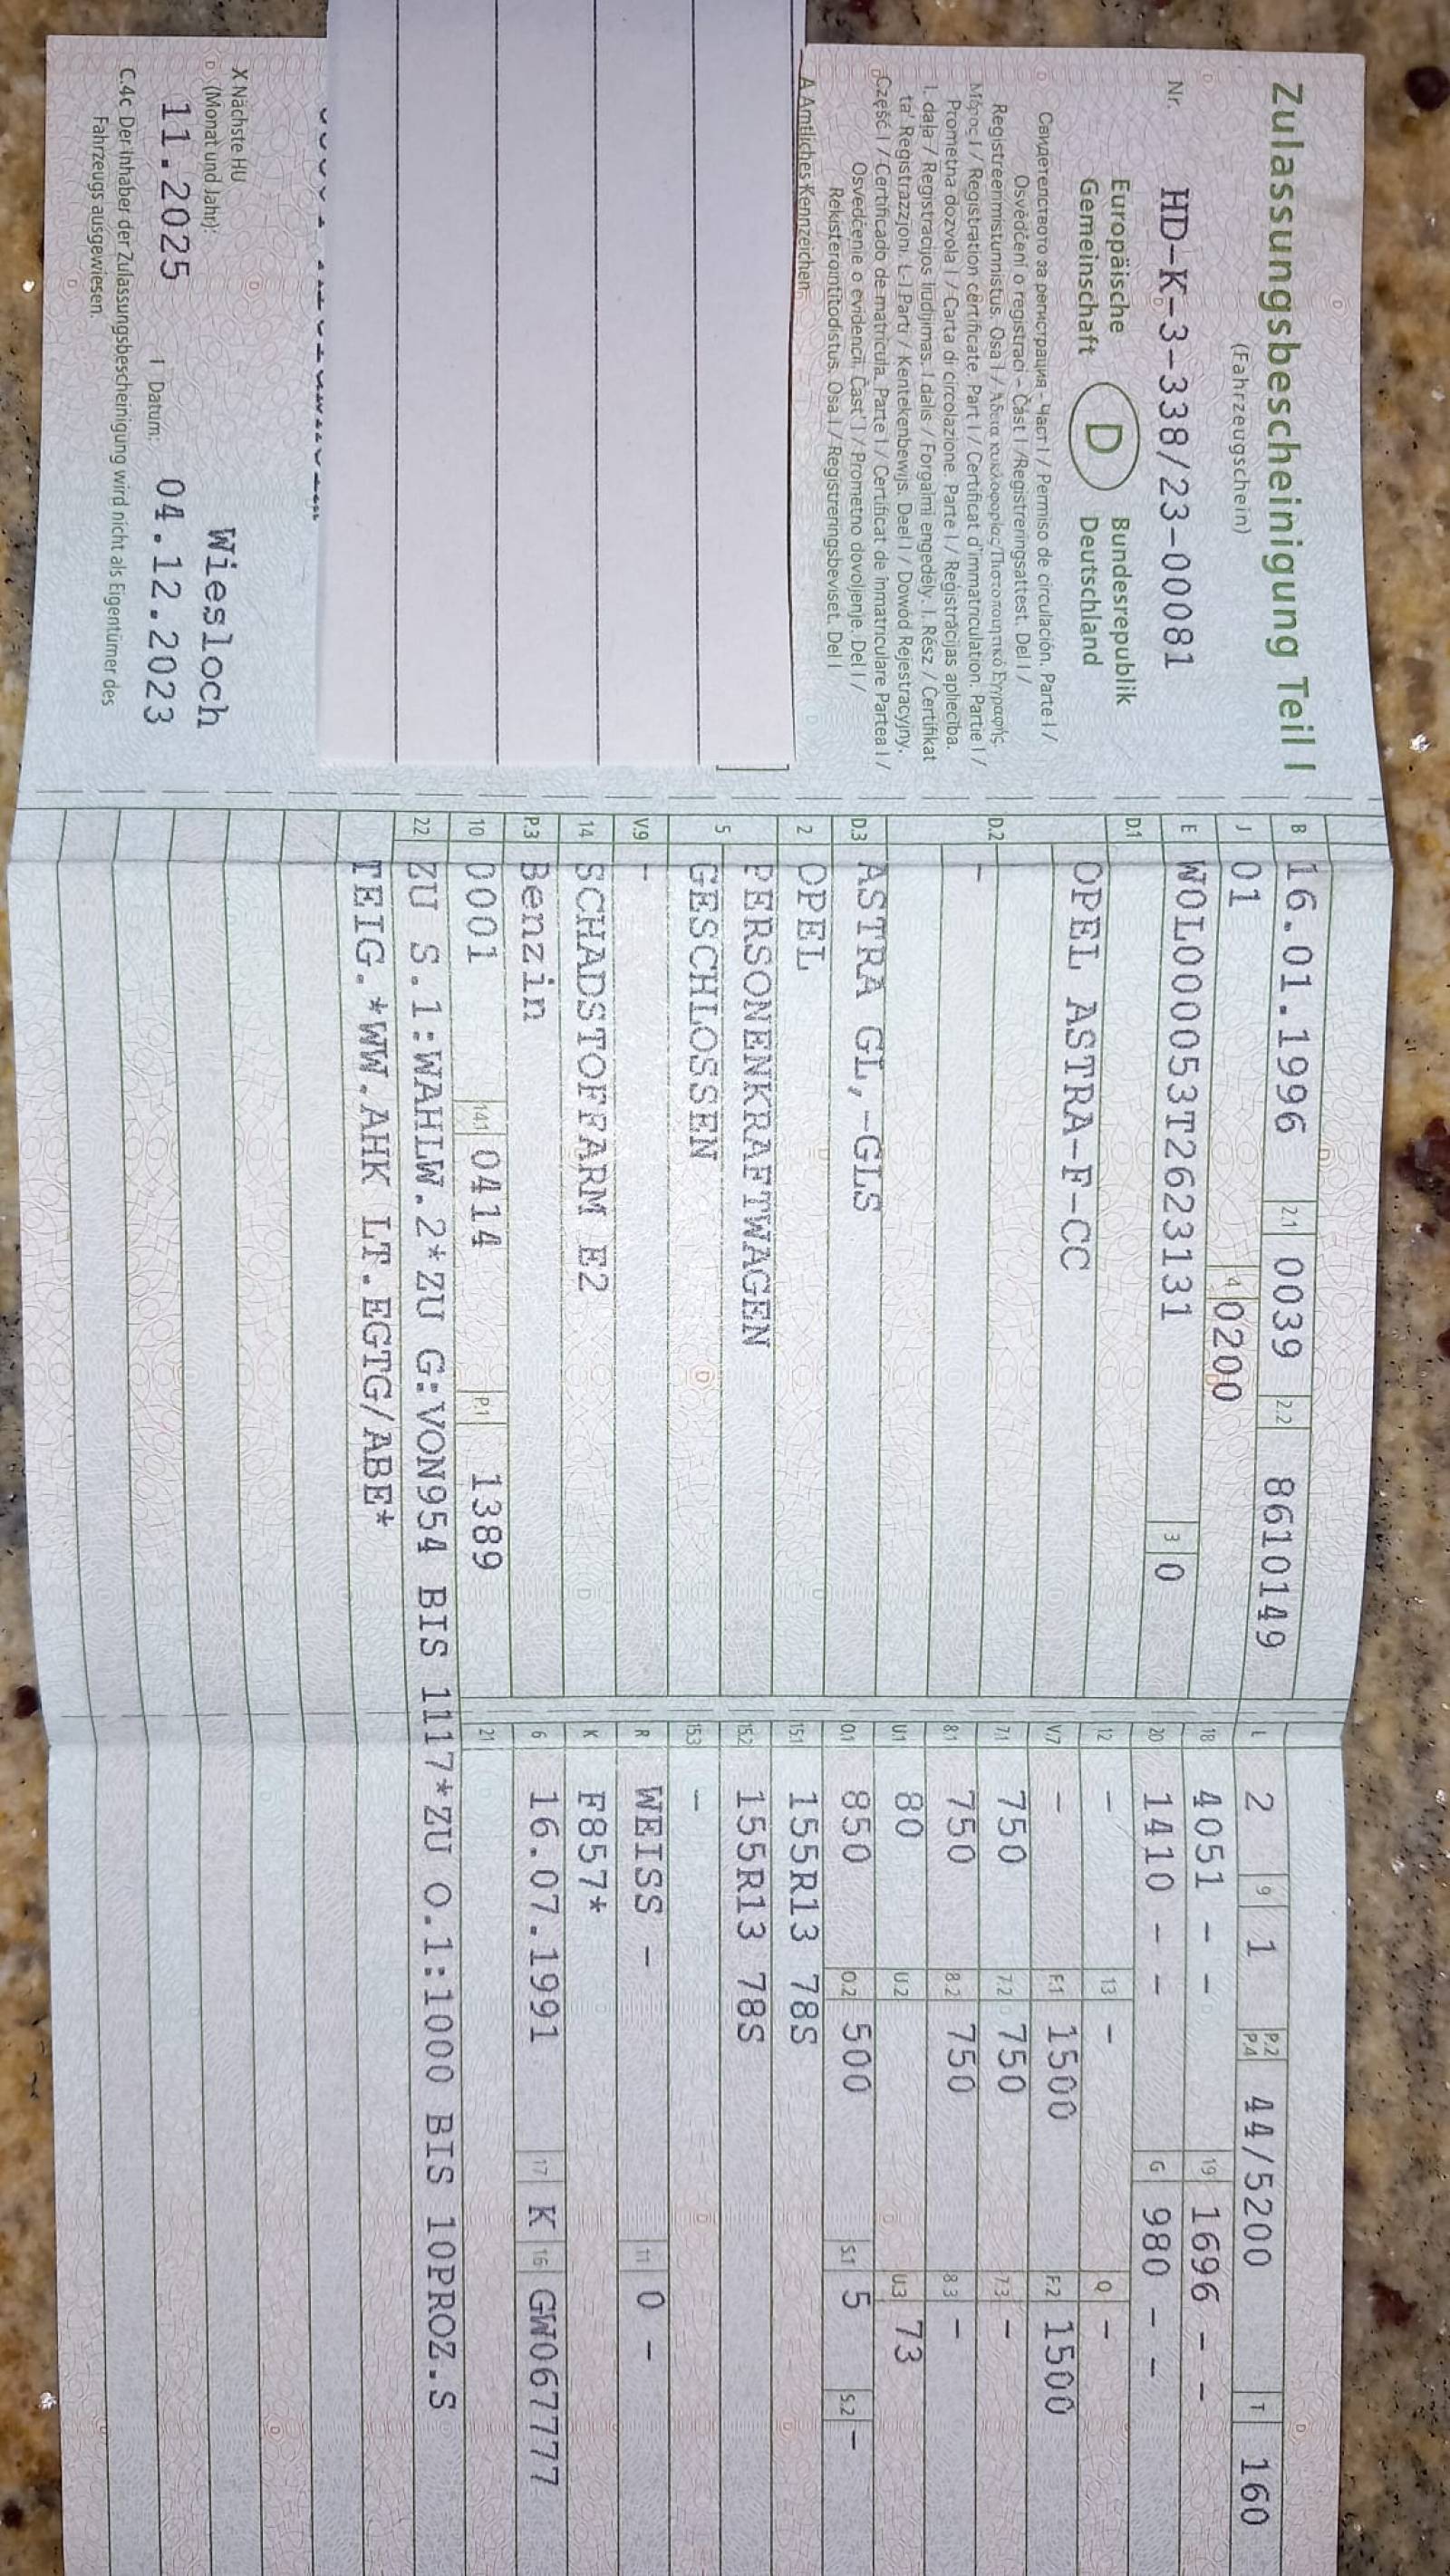 Zulassungsbescheinigung Teil I
(Fahrzeugschein)
Nr. HD-K-3-338/23-00081
Europäische Gemeinschaft D Bundesrepublik Deutschland
Свидетелството за регистрация - Част I / Permiso de circulación. Parte I /
Osvědčení o registraci - Část I / Registreringsattest. Del I /
Registreerimistunnistus. Osa I / Άδεια κυκλοφορίας/Πιστοποιητικό Εγγραφής.
Μέρος I / Registration certificate. Part I / Certificat d'immatriculation. Partie I /
Prometna dozvola I / Carta di circolazione. Parte I / Reģistrācijas apliecība.
I. daļa / Registracijos liudijimas. I dalis / Forgalmi engedély. I. Rész / Ċertifikat
ta' Reġistrazzjoni. L-I Parti / Kentekenbewijs. Deel I / Dowód Rejestracyjny.
Część I / Certificado de matrícula. Parte I / Certificat de înmatriculare Partea I /
Osvedčenie o evidencii. Časť I / Prometno dovoljenje. Del I /
Rekisteröintitodistus. Osa I / Registreringsbeviset. Del I
A Amtliches Kennzeichen
X Nächste HU
(Monat und Jahr):
11.2025
Wiesloch
I Datum: 04.12.2023
C.4c Der Inhaber der Zulassungsbescheinigung wird nicht als Eigentümer des
Fahrzeugs ausgewiesen.
B 16.01.1996 2.1 0039 2.2 8610149
J 01 4 0200
E W0L000053T2623131 3 0
D.1 OPEL ASTRA-F-CC
D.2 -
D.3 ASTRA GL,-GLS
2 OPEL
5 PERSONENKRAFTWAGEN
GESCHLOSSEN
V.9 -
14 SCHADSTOFFARM E2
P.3 Benzin
10 0001 14.1 0414 P.1 1389
22 ZU S.1:WAHLW.2*ZU G:VON954 BIS 1117*ZU O.1:1000 BIS 10PROZ.S
TEIG.*WW.AHK LT.EGTG/ABE*
L 2 9 1 P.2 P.4 44/5200 T 160
18 4051 - - 19 1696 - -
20 1410 - - G 980 - -
12 - 13 - Q -
V.7 - F.1 1500 F.2 1500
7.1 750 7.2 750 7.3 -
8.1 750 8.2 750 8.3 -
U.1 80 U.2 U.3 73
O.1 850 O.2 500 S.1 5 S.2 -
15.1 155R13 78S
15.2 155R13 78S
15.3 -
R WEISS - 11 0 -
K F857*
6 16.07.1991 17 K 16 GW067777
21